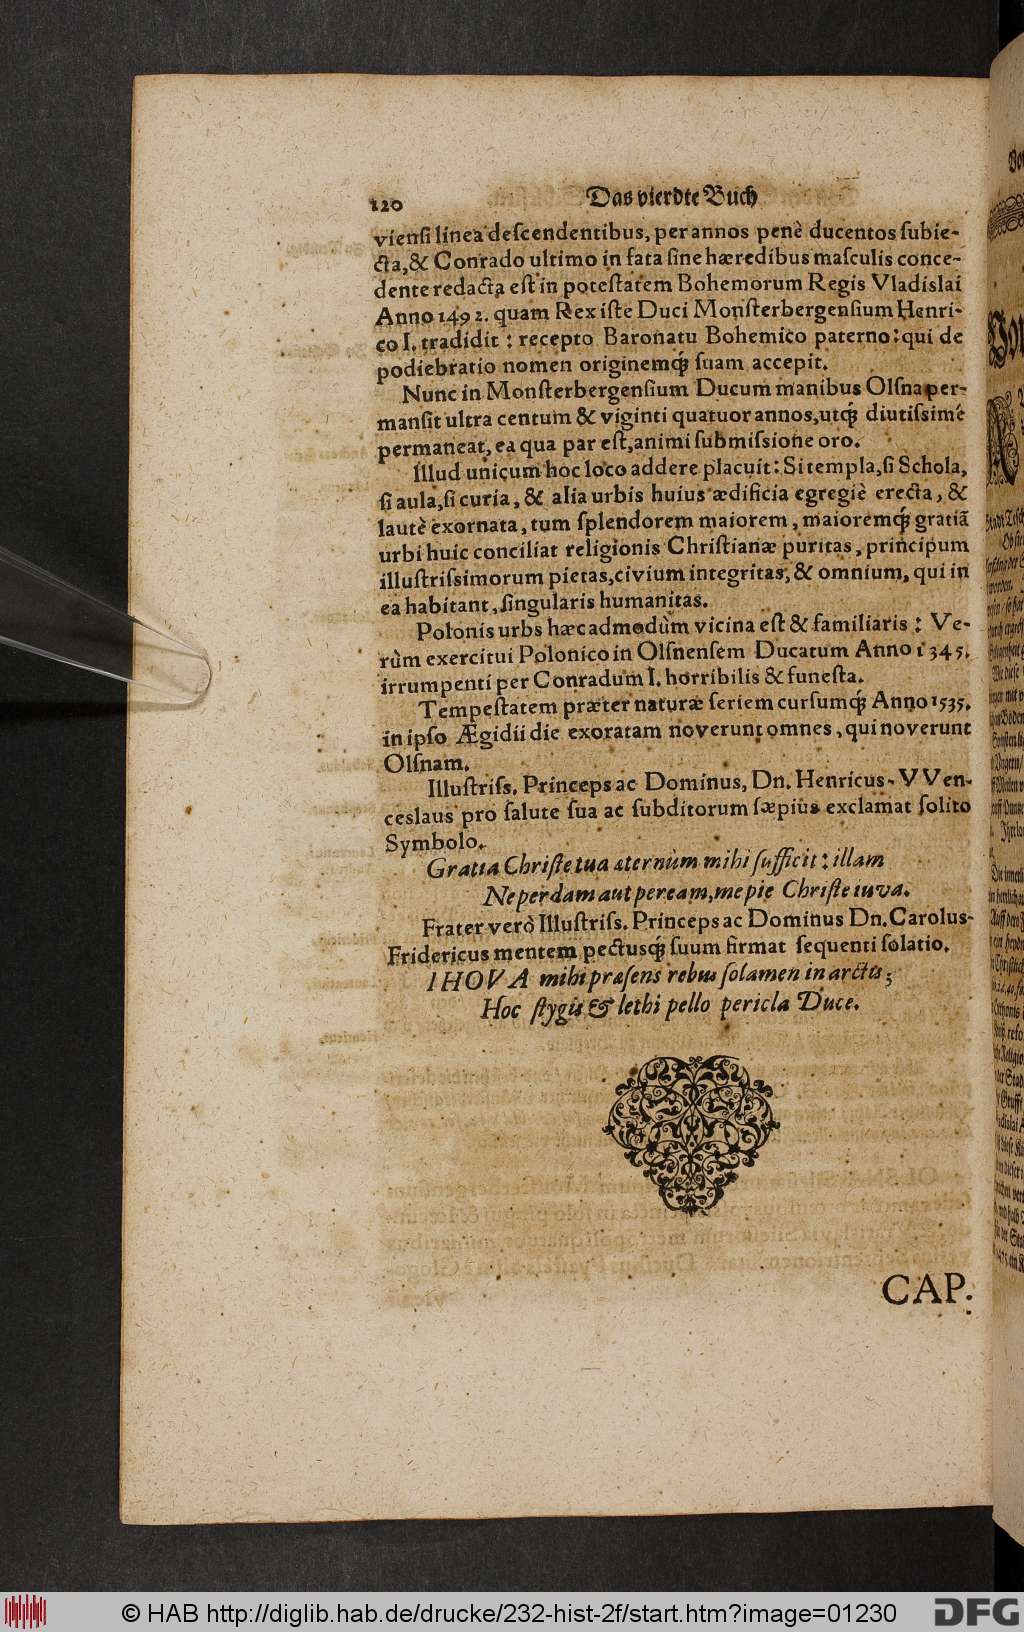 120 Das vierdte Buch
viensi linea descendentibus, per annos penè ducentos subie-
cta, & Conrado ultimo in fata sine hæredibus masculis conce-
dente redacta est in potestatem Bohemorum Regis Vladislai
Anno 1492. quam Rex iste Duci Monsterbergensium Henri-
co I. tradidit : recepto Baronatu Bohemico paterno: qui de
podiebratio nomen originemq́; suam accepit.
Nunc in Monsterbergensium Ducum manibus Olsna per-
mansit ultra centum & viginti quatuor annos, utq́; diutissimé
permaneat, ea qua par est, animi submissione oro.
Illud unicum hoc loco addere placuit: Si templa, si Schola,
si aula, si curia, & alia urbis huius ædificia egregiè erecta, &
lautè exornata, tum splendorem maiorem, maioremq́; gratiā
urbi huic conciliat religionis Christianæ puritas, principum
illustrissimorum pietas, civium integritas, & omnium, qui in
ea habitant, singularis humanitas.
Polonis urbs hæc admodùm vicina est & familiaris : Ve-
rùm exercitui Polonico in Olsnensem Ducatum Anno 1345.
irrumpenti per Conradum I. horribilis & funesta.
Tempestatem præter naturæ seriem cursumq́; Anno 1535.
in ipso Ægidii die exoratam noverunt omnes, qui noverunt
Olsnam.
Illustriss. Princeps ac Dominus, Dn. Henricus-VVen-
ceslaus pro salute sua ac subditorum sæpius exclamat solito
Symbolo.
Gratia Christe tua æternùm mihi sufficit: illam
Ne perdam aut peream, me pie Christe iuva.
Frater verò Illustriss. Princeps ac Dominus Dn. Carolus-
Fridericus mentem pectusq́; suum firmat sequenti solatio.
IHOVA mihi præsens rebus solamen in arctis;
Hoc stygis & lethi pello pericla Duce.
CAP.
© HAB http://diglib.hab.de/drucke/232-hist-2f/start.htm?image=01230
DFG